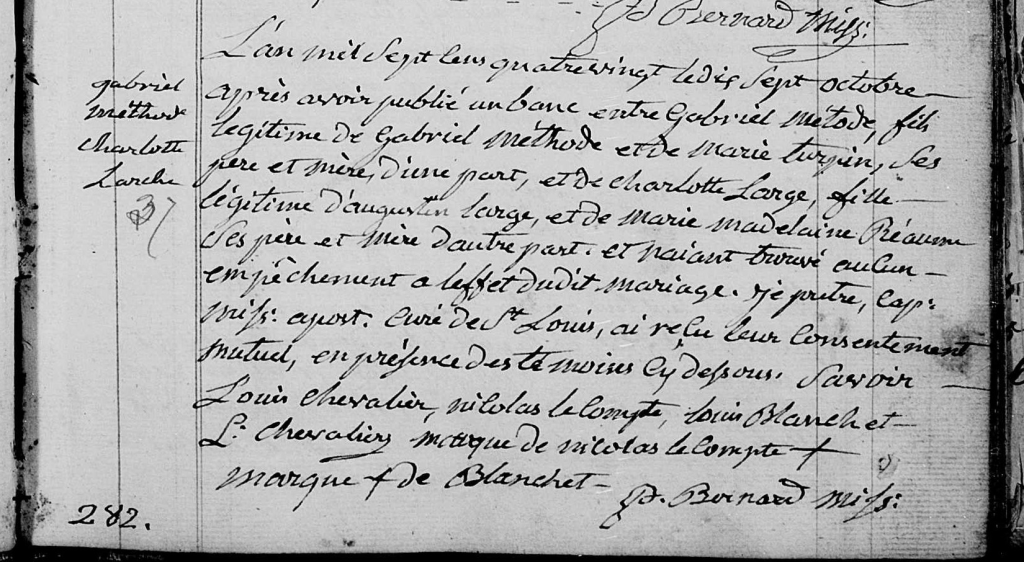 P. Bernard Miss:
L'an mil sept cens quatrevingt le dix sept octobre
après avoir publié un banc entre Gabriel Métode, fils
legitime de Gabriel Méthode et de Marie turpin, ses
pere et mère, d'une part, et de charlotte Large, fille
légitime d'augustin large, et de Marie Madelaine Réaume
ses père et mère d'autre part. et n'aiant trouvé aucun
empêchement a l'effet dudit mariage. je pretre, Cap:
miss: apost. Curé de St Louis, ai reçu leur Consentement
mutuel, en présence des temoins Cy dessous. Savoir
Louis Chevalier, nicolas le Compte, louis Blanchet
L: Chevalier marque de nicolas le Compte +
marque + de Blanchet
P. Bernard miss:
gabriel
méthode
charlotte
Larche
3
282.